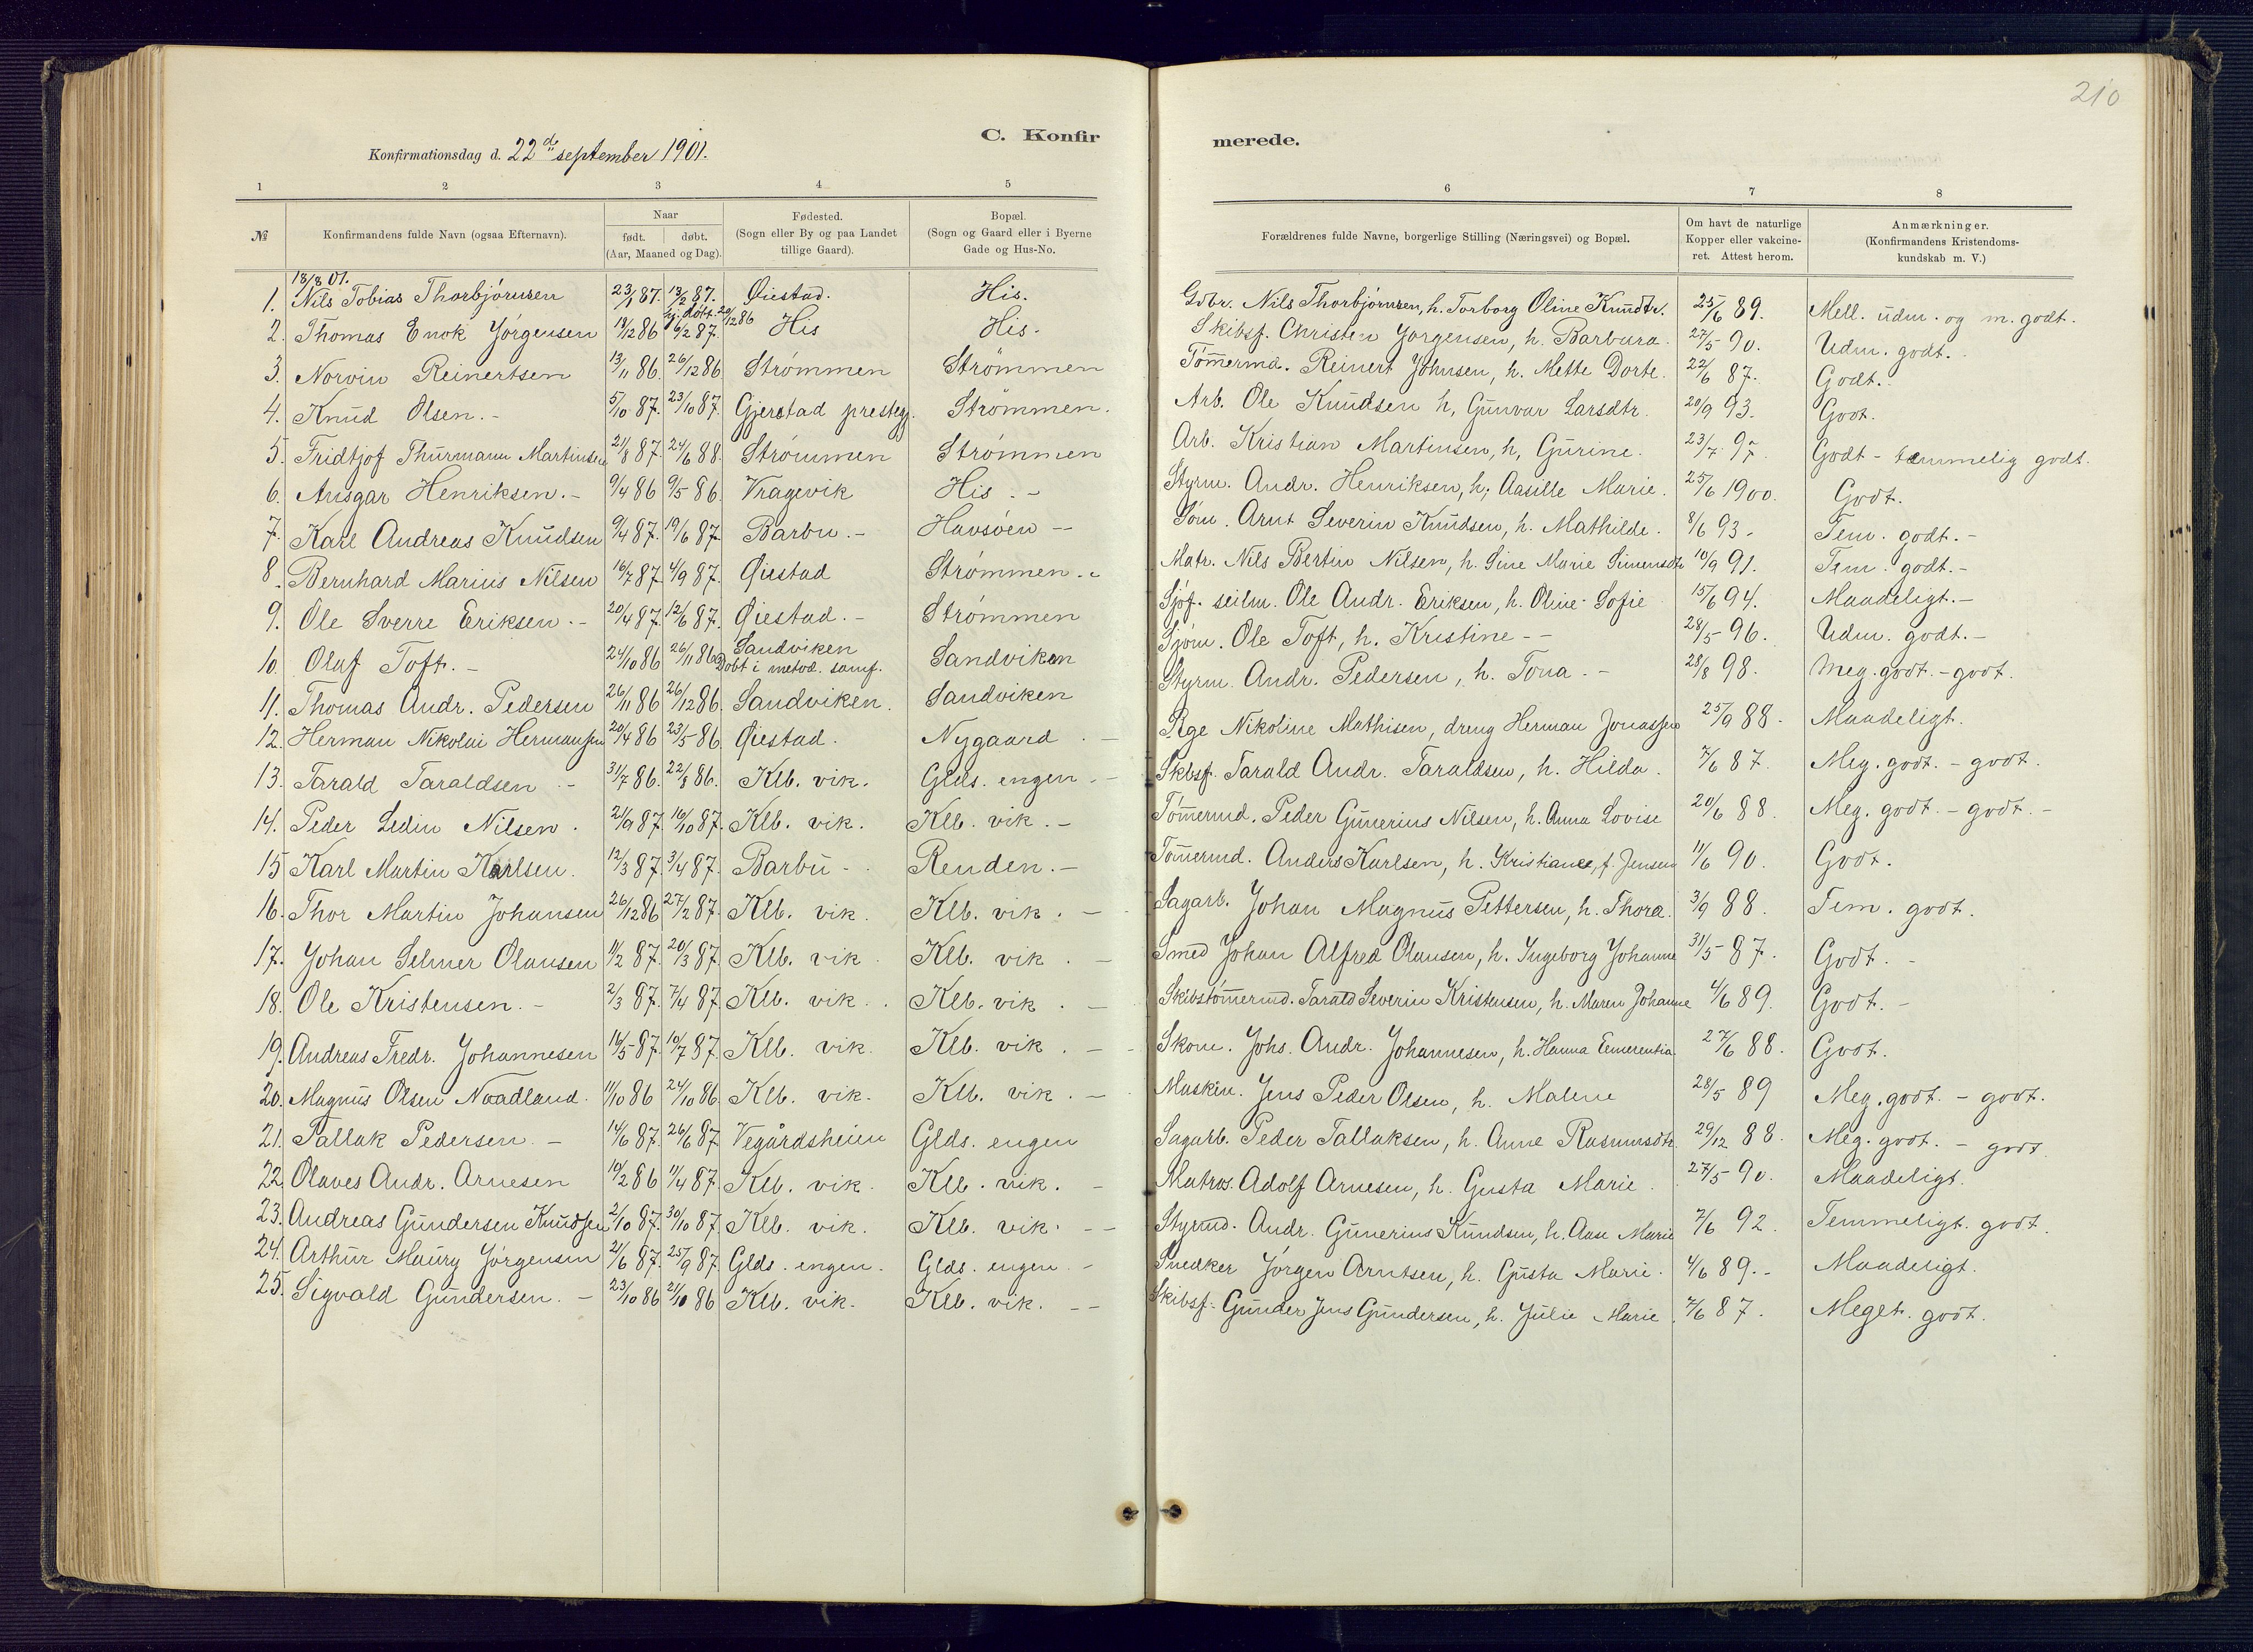 210
C. Konfirmerede.
Konfirmationsdag d. 22de september 1901.
1 2 3 4 5 6 7 8
№ Konfirmandens fulde Navn (ogsaa Efternavn). Naar født. døbt. (Aar, Maaned og Dag). Fødested. (Sogn eller By og paa Landet tillige Gaard). Bopæl. (Sogn og Gaard eller i Byerne Gade og Hus-No. Forældrenes fulde Navne, borgerlige Stilling (Næringsvei) og Bopæl. Om havt de naturlige Kopper eller vakcineret. Attest herom. Anmærkninger. (Konfirmandens Kristendomskundskab m. V.)
18/8 01.
1. Nils Tobias Thorbjörnsen 23/1 87. 13/2 87. Øiestad. His. Gdbr. Nils Thorbjörnsen, h. Torborg Oline Knudtr. 25/6 89. Mell. udm. og m. godt.
hj. döbt. 20/12 86
2. Thomas Enok Jörgensen 19/12 86 6/2 87. His His. Skibsf. Christen Jörgensen, h. Barbara. 27/5 90. Udm. godt.
3. Norvin Reinertsen 13/11 86. 26/12 86 Strømmen Strømmen Tömermd. Reinert Johnsen, h. Mette Dorte. 22/6 87. Godt.
4. Knud Olsen. - 5/10 87. 23/10 87. Gjerstad presteg. Strömmen. Arb. Ole Knudsen h, Gunvor Larsdtr. 20/9 93. Godt.
5. Fridtjof Thurmann Martinsen 21/8 87. 24/6 88. Strømmen Strömmen Arb. Kristian Martinsen, h, Gurine. 23/7 97. Godt - temmelig godt.
6. Ansgar Henriksen. - 9/4 86 9/5 86. Vragevik His. - Styrm. Andr. Henriksen, h; Aasille Marie. 25/6 1900. Godt.
7. Karl Andreas Knudsen 9/4 87. 19/6 87. Barbu. - Havsöen - Söm. Arnt Severin Knudsen, h. Mathilde. 8/6 93. Tem. godt. -
8. Bernhard Marius Nilsen 16/7 87. 4/9 87. Øiestad Strømmen. - Matr. Nils Bertin Nilsen, h. Sine Marie Simensdtr 10/9 91. Tem. godt. -
9. Ole Sverre Eriksen. - 20/4 87. 12/6 87. Øiestad. - Strömmen Sjöf. seilm. Ole Andr. Eriksen, h. Oline Sofie 15/6 94. Maadeligt. -
10. Oluf Toft. - 24/10 86 26/11 86 Sandviken Døbt i metod. samf. Sandviken Sjöm. Ole Toft, h. Kristine - - 28/5 96. Udm. godt. -
11. Thomas Andr. Pedersen 26/11 86 26/12 86. Sandviken. Sandviken Styrm. Andr. Pedersen, h. Tona. - 28/8 98. Meg. godt. - godt.
12. Herman Nikolai Hermansen 20/4 86 23/5 86. Øiestad. Nygaard. - Pige Nikoline Mathisen, dreng Herman Jonassen 25/9 88. Maadeligt.
13. Tarald Taraldsen - 31/7 86. 22/8 86. Klb. vik. Glds. engen. - Skbsf. Tarald Andr. Taraldsen, h. Hilda. 7/6 87. Meg. godt. - godt.
14. Peder Ledin Nilsen. 21/9 87. 16/10 87. Klb. vik. Klb. vik. - Tömermd. Peder Gunerius Nilsen, h. Anna Lovise 20/6 88. Meg. godt. - godt. -
15 Karl Martin Karlsen. 12/3 87. 3/4 87. Barbu - Renden. - Tömermd. Anders Karlsen, h. Kristiane, f. Jensen 11/6 90. Godt.
16. Thor Martin Johansen 26/12 86 27/2 87. Klb. vik. Klb. vik. - Sagarb. Johan Magnus Pettersen, h. Thora. 3/9 88. Tem. godt.
17. Johan Selmer Olausen 11/2 87. 20/3 87. Klb. vik Klb. vik. - Smed Johan Alfred Olausen, h. Ingeborg Johanne 31/5 87. Godt. -
18. Ole Kristensen. - 2/3 87. 7/4 87. Klb. vik. Klb. vik. - Skibstömermd. Tarald Severin Kristensen, h. Maren Johanne 4/6 89. Godt. -
19. Andreas Fredr. Johannesen 16/5 87. 10/7 87. Klb. vik. Klb. vik. - Skom. Johs. Andr. Johannesen, h. Hanna Emerentia 27/6 88. Godt.
20. Magnus Olsen Naadland. 11/10 86 24/10 86. Klb. vik. Klb. vik. - Maskin. Jens Peder Olsen, h. Malene 28/5 89 Meg. godt. - godt.
21. Tallak Pedersen. - 14/6 87. 26/6 87 Vegårdsheien Glds. engen Sagarb. Peder Tallaksen, h. Anne Rasmusdtr 29/12 88. Meg. godt. - godt
22. Olaves Andr. Arnesen 10/2 86 11/4 87. Klb. vik. Klb. vik. - Matros. Adolf Arnesen, h. Gusta Marie. 27/5 90. Maadeligt.
23. Andreas Gundersen Knudsen 2/10 87. 30/10 87. Klb. vik. Klb. vik. - Styrmd. Andr. Gunerius Knudsen, h. Aase Marie 7/6 92. Temmeligt. godt.
24. Arthur Maury Jörgensen 21/6 87. 25/9 87. Glds. engen. Glds. engen - Snedker Jörgen Arntsen, h. Gusta Marie. 4/6 89. - Maadeligt.
25. Sigvald Gundersen. - 23/10 86 21/10 86 Klb. vik. Klb. vik. - - Skibsf. Gunder Jens Gundersen, h. Julie Marie. 7/6 87. Meget. godt.